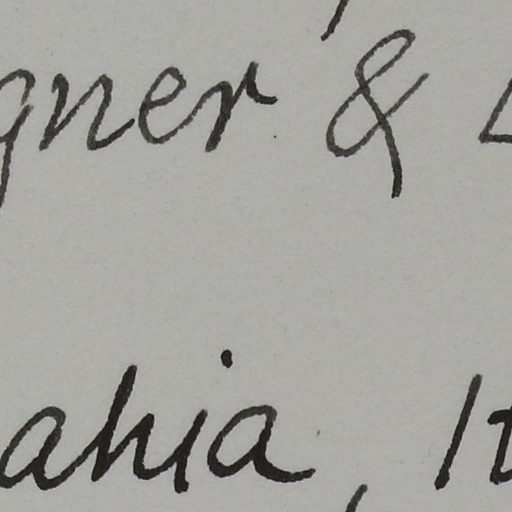 gner &
ahia, It